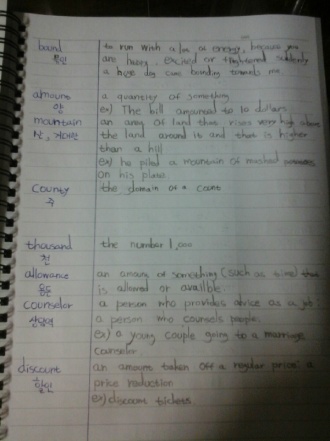 bound to run with a lot of energy, because you
are happy, excited or frightened suddenly
a huge dog came bounding towards me
amount a quantity of something
양 ex) The bill amounted to 10 dollars
mountain an area of land that rises very high above
산, the land around it and that is higher
than a hill
ex) he piled a mountain of mashed potatoes
on his plate.
county the domain of a count
thousand the number 1,000
천
allowance an amount of something (such as time) that
용돈 is allowed or
counselor a person who provides advice as a job :
a person who counsels people.
ex) a young couple going to a marriage
counselor
discount an amount taken off a regular price : a
할인 price reduction
ex) discount tickets